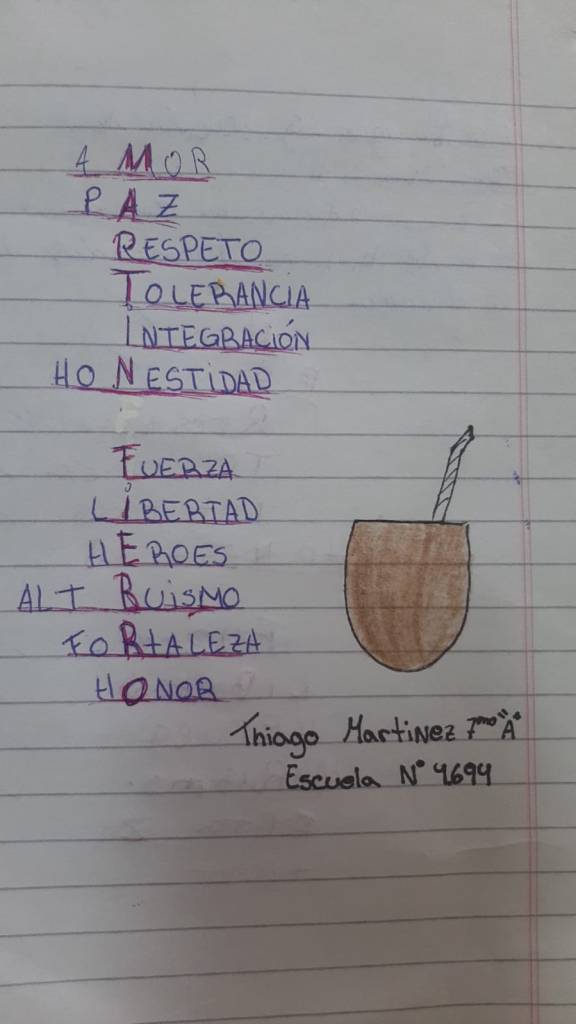 AMOR
PAZ
RESPETO
TOLERANCIA
INTEGRACIÓN
HONESTIDAD
FUERZA
LIBERTAD
HEROES
ALTRUISMO
FORTALEZA
HONOR
Thiago Martinez 7mo "A"
Escuela N° 4694